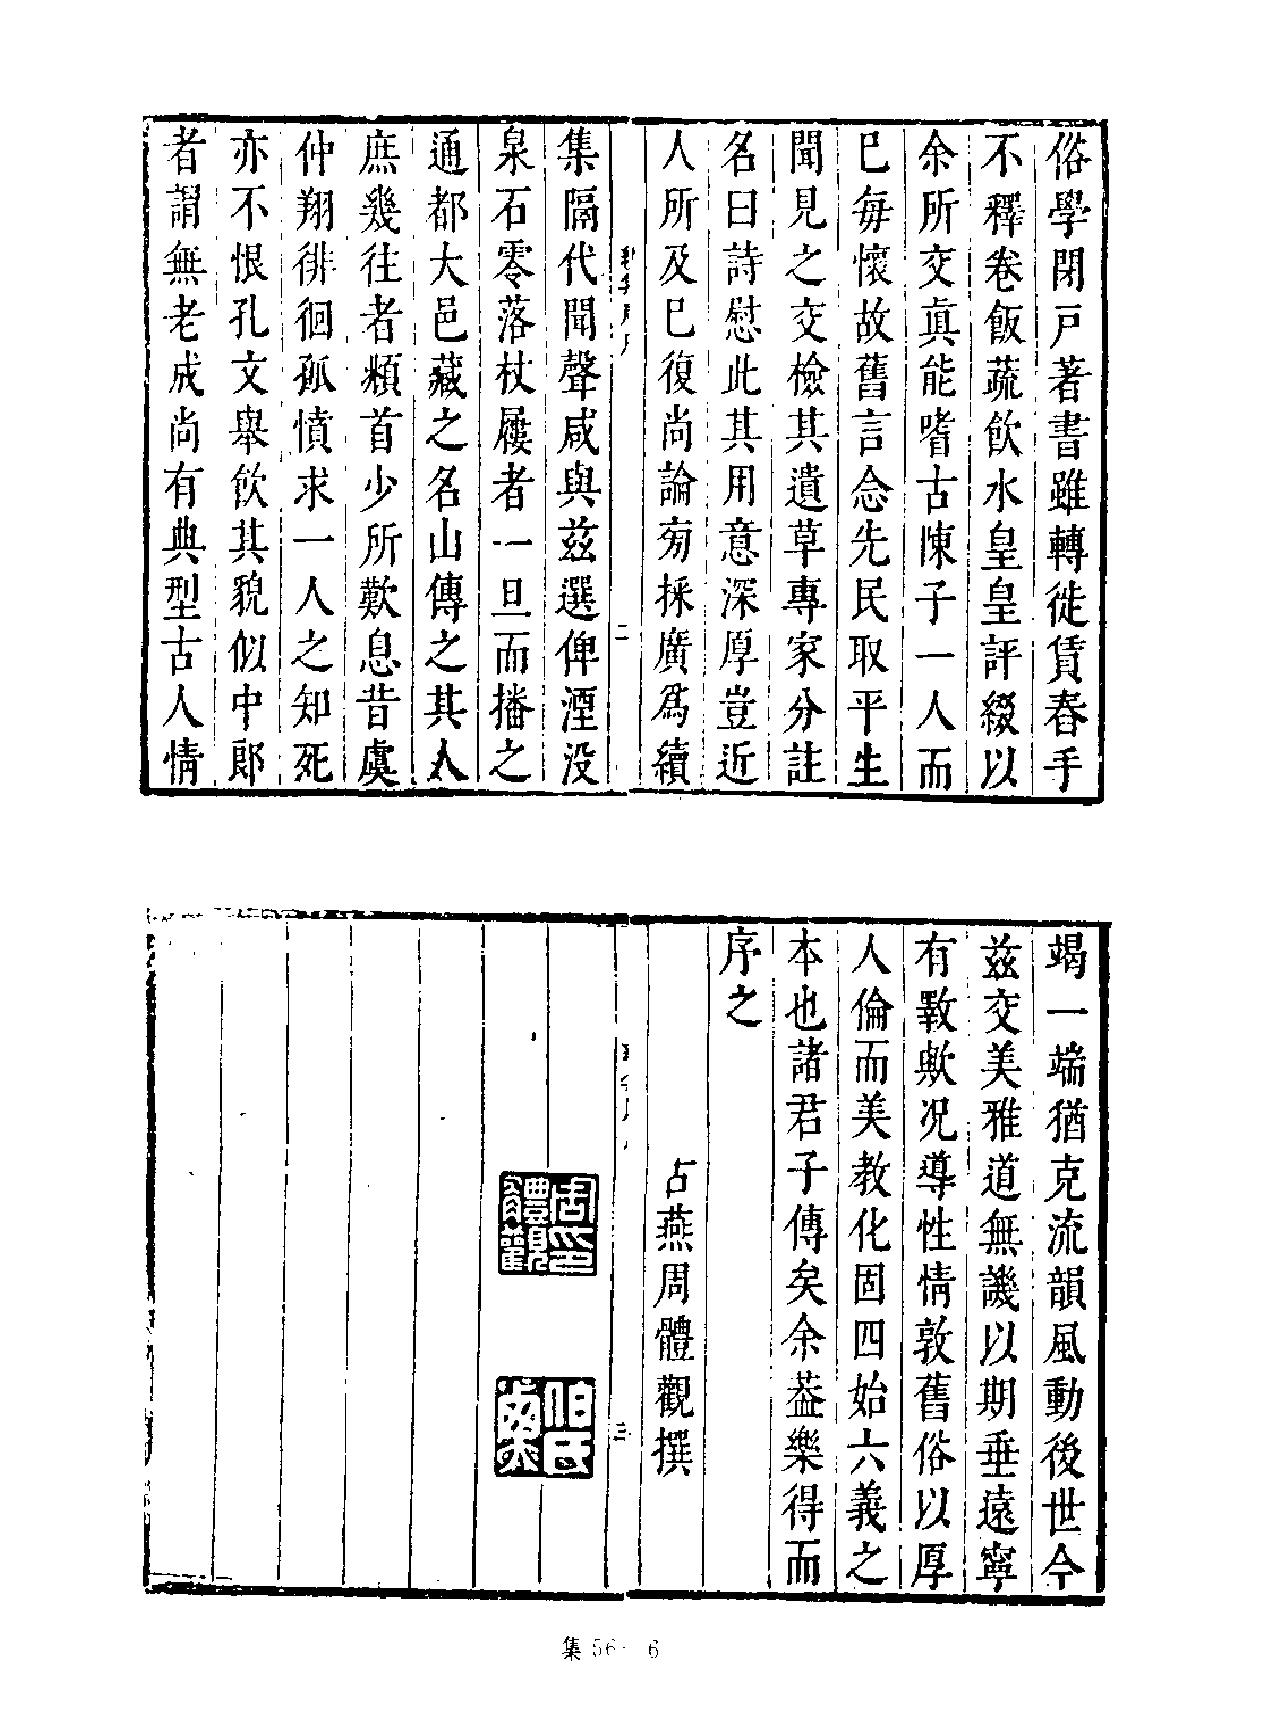 俗學閉戸著書雖轉徙賃舂手
不釋卷飯蔬飲水皇皇評綴以
余所交眞能嗜古陳子一人而
已每懷故舊言念先民取平生
聞見之交檢其遺草專家分註
名曰詩慰此其用意深厚豈近
人所及巳復尚論旁採廣爲續
二
集隔代聞聲咸與兹選俾湮没
泉石零落杖屨者一旦而播之
通都大邑藏之名山傳之其人
庶幾往者頫首少所歎息昔虞
仲翔徘徊孤憤求一人之知死
亦不恨孔文舉飲其貌似中郎
者謂無老成尚有典型古人情
竭一端猶克流韻風動後世今
兹交美雅道無譏以期垂遠寧
有斁歟况導性情敦舊俗以厚
人倫而美教化固四始六義之
本也諸君子傳矣余葢樂得而
序之
占燕周體觀撰
三
周印體觀
伯氏
集 56- 6